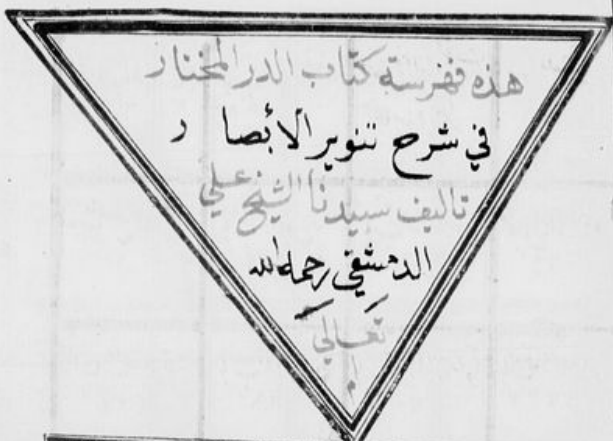 هذه فهرسة كتاب الدر المختار
في شرح تنوير الأبصار
تاليف سيدنا الشيخ علي
الدمشقي رحمه الله
تعالى
م